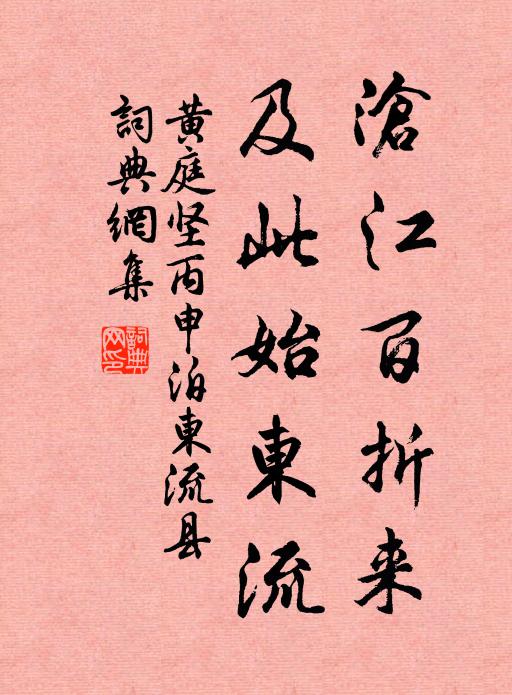 滄江百折来
及此始東流
黄庭坚丙申泊東流县
詞典網集
詞典网印